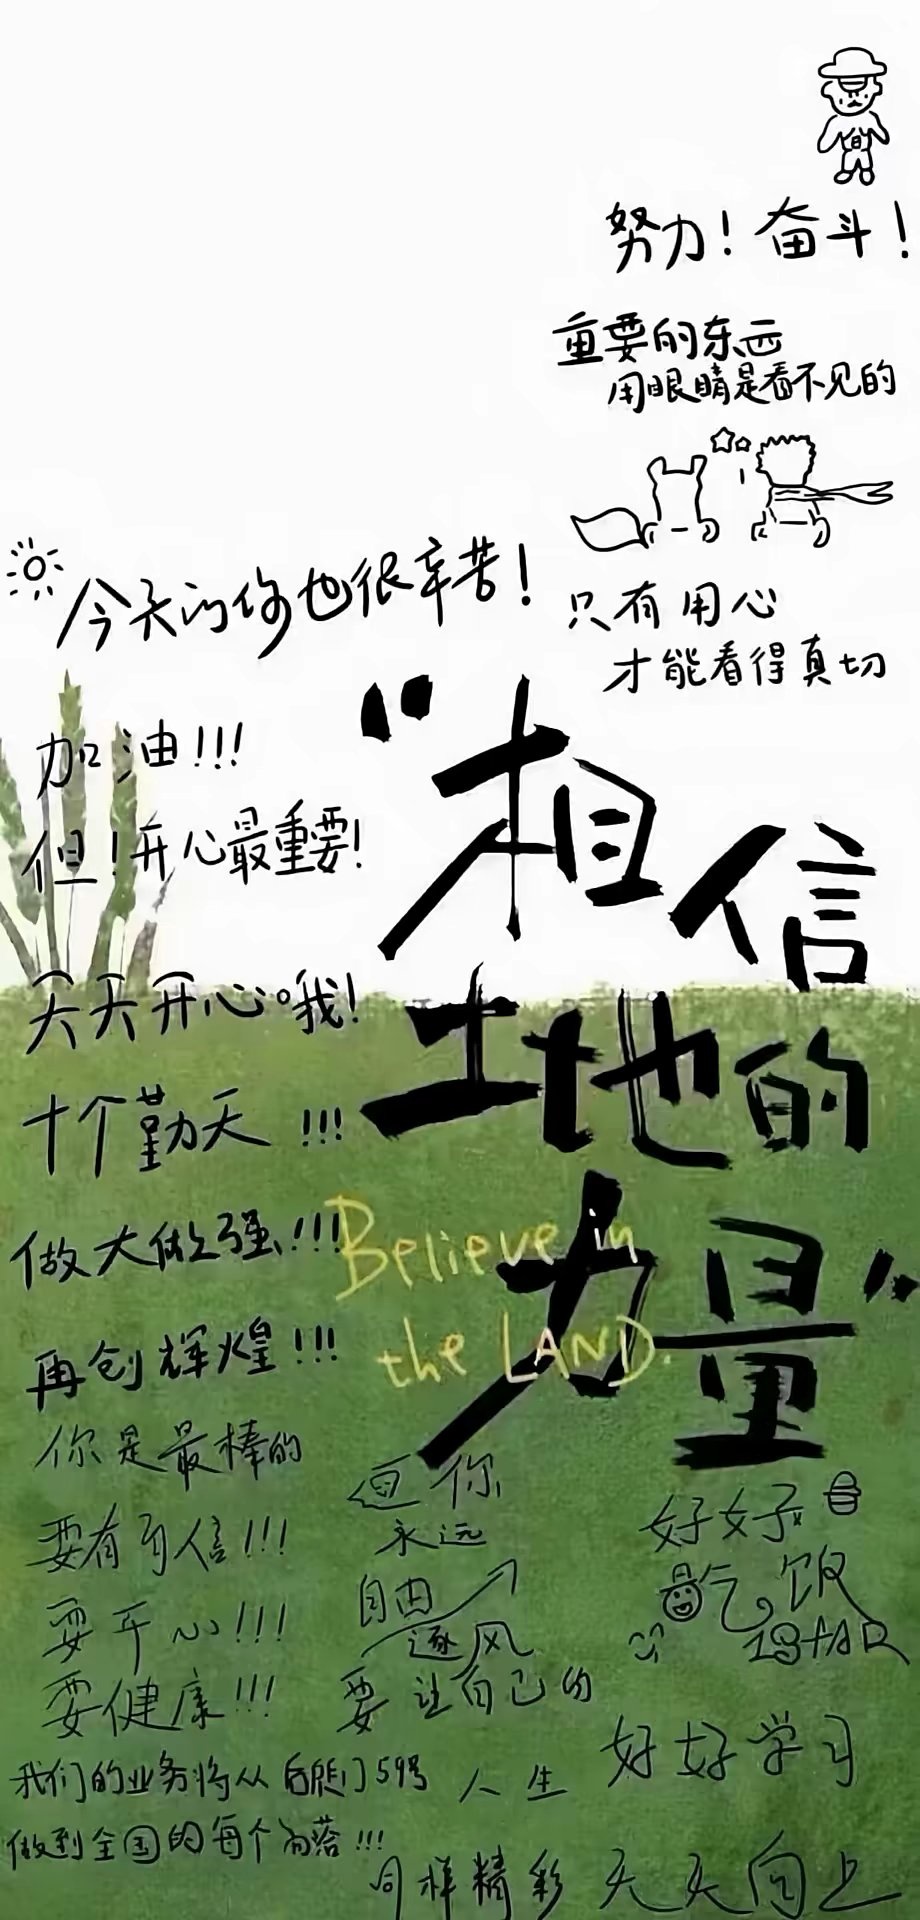 努力！奋斗！
重要的东西
用眼睛是看不见的
今天的你也很辛苦！
只有用心
才能看得真切
加油!!!
但！开心最重要!
天天开心哦!
十个勤天 !!!
做大做强!!!
再创辉煌!!!
“相信
土地的
力量”
Believe in
the LAND.
你是最棒的
要有自信!!!
要开心!!!
要健康!!!
我们的业务将从后陡门59号
做到全国的每个角落!!!
你
永远
自由
逐风
要让自己的
人生
同样精彩
好好
吃饭
好好学习
天天向上